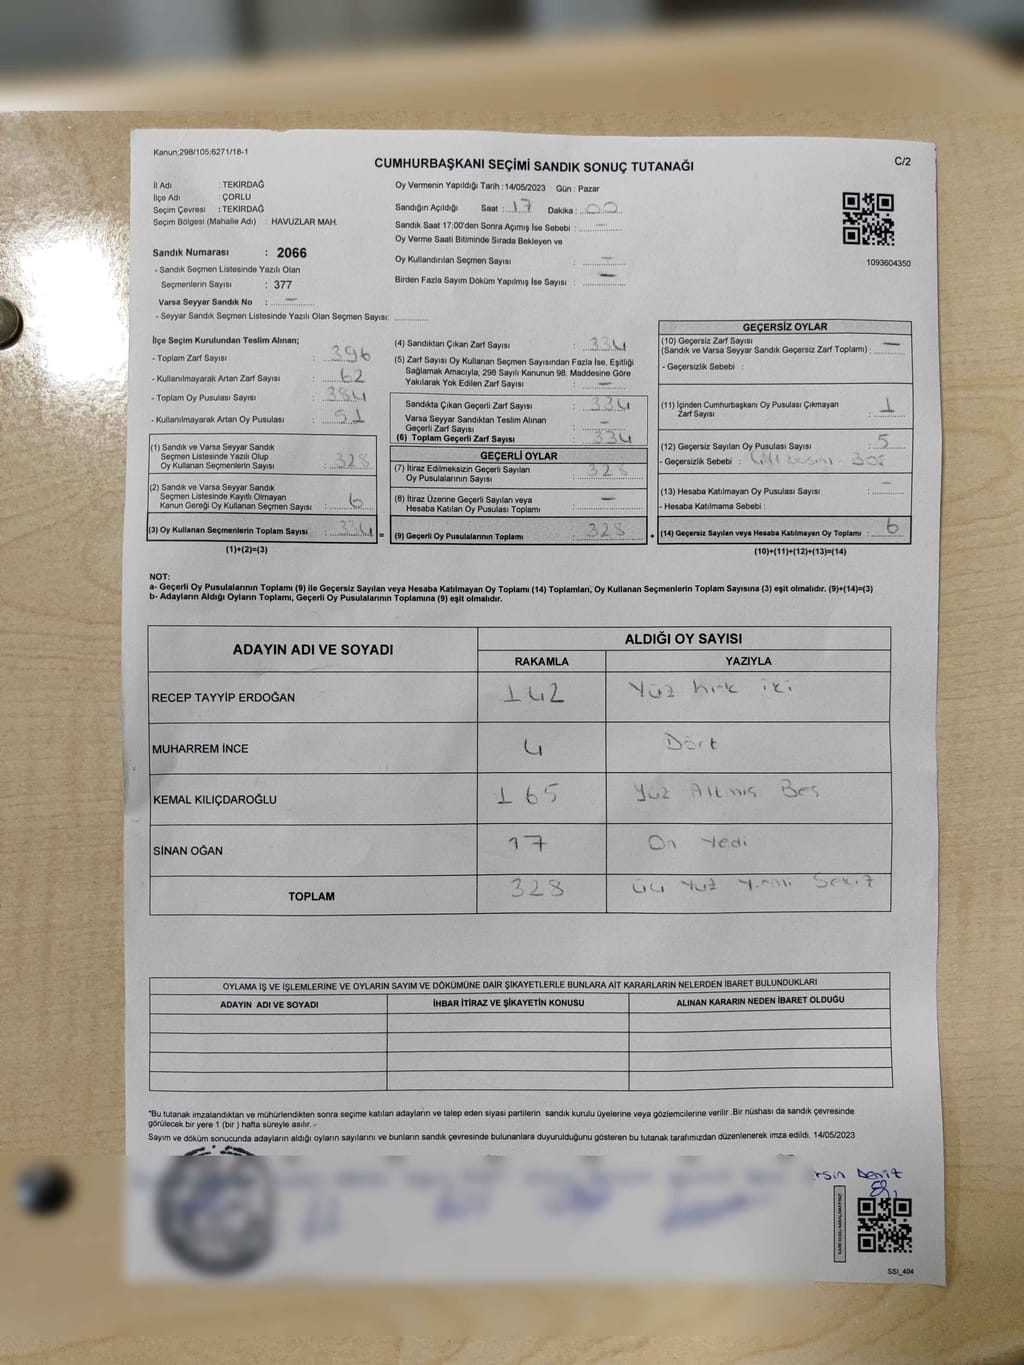 Kanun;298/105;6271/18-1
CUMHURBAŞKANI SEÇİMİ SANDIK SONUÇ TUTANAĞI
C/2
İl Adı : TEKİRDAĞ
İlçe Adı : ÇORLU
Seçim Çevresi : TEKİRDAĞ
Seçim Bölgesi (Mahalle Adı) : HAVUZLAR MAH.
Oy Vermenin Yapıldığı Tarih : 14/05/2023 Gün : Pazar
Sandığın Açıldığı Saat : 17 Dakika : 00
Sandık Saat 17:00'den Sonra Açımış İse Sebebi : —
Oy Verme Saati Bitiminde Sırada Bekleyen ve
Oy Kullandırılan Seçmen Sayısı : —
Birden Fazla Sayım Döküm Yapılmış İse Sayısı : —
1093604350
Sandık Numarası : 2066
- Sandık Seçmen Listesinde Yazılı Olan
Seçmenlerin Sayısı : 377
Varsa Seyyar Sandık No : —
- Seyyar Sandık Seçmen Listesinde Yazılı Olan Seçmen Sayısı:
İlçe Seçim Kurulundan Teslim Alınan;
- Toplam Zarf Sayısı : 396
- Kullanılmayarak Artan Zarf Sayısı : 62
- Toplam Oy Pusulası Sayısı : 384
- Kullanılmayarak Artan Oy Pusulası : 51
(1) Sandık ve Varsa Seyyar Sandık
Seçmen Listesinde Yazılı Olup
Oy Kullanan Seçmenlerin Sayısı : 328
(2) Sandık ve Varsa Seyyar Sandık
Seçmen Listesinde Kayıtlı Olmayan
Kanun Gereği Oy Kullanan Seçmen Sayısı : 6
(3) Oy Kullanan Seçmenlerin Toplam Sayısı : 334 =
(1)+(2)=(3)
(4) Sandıktan Çıkan Zarf Sayısı : 334
(5) Zarf Sayısı Oy Kullanan Seçmen Sayısından Fazla İse, Eşitliği
Sağlamak Amacıyla; 298 Sayılı Kanunun 98. Maddesine Göre
Yakılarak Yok Edilen Zarf Sayısı : —
Sandıkta Çıkan Geçerli Zarf Sayısı : 334
Varsa Seyyar Sandıktan Teslim Alınan
Geçerli Zarf Sayısı : —
(6) Toplam Geçerli Zarf Sayısı : 334
GEÇERLİ OYLAR
(7) İtiraz Edilmeksizin Geçerli Sayılan
Oy Pusulalarının Sayısı : 328
(8) İtiraz Üzerine Geçerli Sayılan veya
Hesaba Katılan Oy Pusulası Toplamı : —
(9) Geçerli Oy Pusulalarının Toplamı : 328 +
GEÇERSİZ OYLAR
(10) Geçersiz Zarf Sayısı
(Sandık ve Varsa Seyyar Sandık Geçersiz Zarf Toplamı) : —
- Geçersizlik Sebebi :
(11) İçinden Cumhurbaşkanı Oy Pusulası Çıkmayan
Zarf Sayısı : 1
(12) Geçersiz Sayılan Oy Pusulası Sayısı : 5
- Geçersizlik Sebebi :
(13) Hesaba Katılmayan Oy Pusulası Sayısı : —
- Hesaba Katılmama Sebebi :
(14) Geçersiz Sayılan veya Hesaba Katılmayan Oy Toplamı : 6
(10)+(11)+(12)+(13)=(14)
NOT:
a- Geçerli Oy Pusulalarının Toplamı (9) ile Geçersiz Sayılan veya Hesaba Katılmayan Oy Toplamı (14) Toplamları, Oy Kullanan Seçmenlerin Toplam Sayısına (3) eşit olmalıdır. (9)+(14)=(3)
b- Adayların Aldığı Oyların Toplamı, Geçerli Oy Pusulalarının Toplamına (9) eşit olmalıdır.
ADAYIN ADI VE SOYADI
ALDIĞI OY SAYISI
RAKAMLA YAZIYLA
RECEP TAYYİP ERDOĞAN 142 Yüz kırk iki
MUHARREM İNCE 4 Dört
KEMAL KILIÇDAROĞLU 165 Yüz Altmış Beş
SİNAN OĞAN 17 On Yedi
TOPLAM 328 Üç Yüz Yirmi Sekiz
OYLAMA İŞ VE İŞLEMLERİNE VE OYLARIN SAYIM VE DÖKÜMÜNE DAİR ŞİKAYETLERLE BUNLARA AİT KARARLARIN NELERDEN İBARET BULUNDUKLARI
ADAYIN ADI VE SOYADI İHBAR İTİRAZ VE ŞİKAYETİN KONUSU ALINAN KARARIN NEDEN İBARET OLDUĞU
*Bu tutanak imzalandıktan ve mühürlendikten sonra seçime katılan adayların ve talep eden siyasi partilerin sandık kurulu üyelerine veya gözlemcilerine verilir .Bir nüshası da sandık çevresinde
görülecek bir yere 1 (bir ) hafta süreyle asılır.
Sayım ve döküm sonucunda adayların aldığı oyların sayılarını ve bunların sandık çevresinde bulunanlara duyurulduğunu gösteren bu tutanak tarafımızdan düzenlenerek imza edildi. 14/05/2023
rsin Deniz
SSİ_404